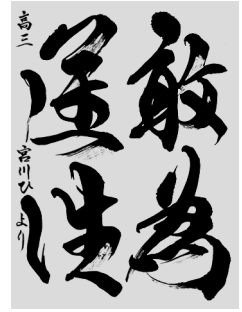 敢為
邁往
高三 宮川ひより